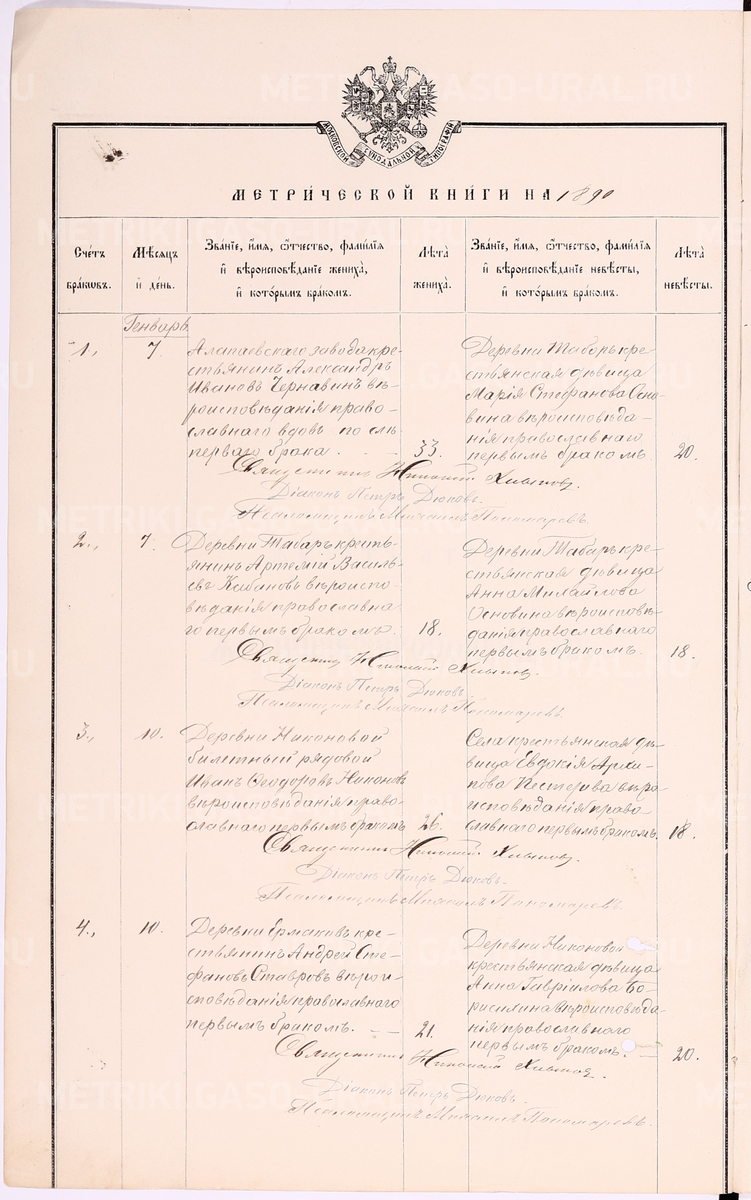 МОСКОВСКОЙ СѴНОДАЛЬНОЙ ТИПОГРАФІИ
МЕТРИ́ЧЕСКОЙ КНИ́ГИ НА 1890
Сче́тъ бра́ковъ.
Мѣ́сѧцъ и҆ де́нь.
Зва́нїе, и҆́мѧ, ѻ҆́тчество, фами́лїѧ и҆ вѣроисповѣ́данїе жениха̀, и҆ кото́рымъ бра́комъ.
Лѣ́та жениха̀.
Зва́нїе, и҆́мѧ, ѻ҆́тчество, фами́лїѧ и҆ вѣроисповѣ́данїе невѣ́сты, и҆ кото́рымъ бра́комъ.
Лѣ́та невѣ́сты.
Генварь
1.,
7
Алапаевскаго завода кре-
стьянинъ Александръ
Ивановъ Чернавинъ вѣ-
роисповѣданія право-
славнаго вдовъ послѣ
перваго брака.
33.
Деревни Таборъ кре-
стьянская дѣвица
Марія Стефанова Осно-
вина вѣроисповѣда-
нія православнаго
первымъ бракомъ
20.
Священникъ Николай
Діаконъ Петръ Дюковъ.
Псаломщикъ Михаилъ Пономаревъ.
2.,
7.
Деревни Табаръ кресть-
янинъ Артемій Василь-
евъ Кабановъ вѣроиспо-
вѣданія православна-
го первымъ бракомъ.
18.
Деревни Табаръ кре-
стьянская дѣвица
Анна Михайлова
Основина вѣроисповѣ-
данія православнаго
первымъ бракомъ.
18.
Священникъ Николай
Діаконъ Петръ Дюковъ
Псаломщикъ Михаилъ Пономаревъ.
3.,
10.
Деревни Никоновой
билетный рядовой
Иванъ Ѳеодоровъ Никоновъ
вѣроисповѣданія право-
славнаго первымъ бракомъ
26.
Села крестьянская дѣ-
вица Евдокія Архи-
пова Пестерева вѣро
исповѣданія право
славнаго первымъ бракомъ.
18.
Священникъ Николай
Діаконъ Петръ Дюковъ.
Псаломщикъ Михаилъ Пономаревъ.
4.,
10.
Деревни Ермаковъ кре-
стьянинъ Андрей Сте-
фановъ Ставровъ вѣрои-
сповѣданія православнаго
первымъ бракомъ.
21.
Деревни Никоновой
крестьянская дѣвица
Анна Гавріилова Бо-
рисихина вѣроисповѣда-
нія православнаго
первымъ бракомъ.
20.
Священникъ Николай
Діаконъ Петръ Дюковъ.
Псаломщикъ Михаилъ Пономаревъ.
METRIKI.GASO-URAL.RU